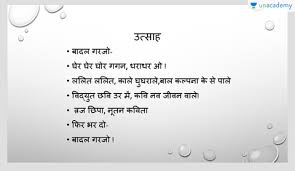 unacademy
उत्साह
• बादल गरजो-
• घेर घेर घोर गगन, धराधर ओ !
• ललित ललित, काले घुघराले,बाल कल्पना के से पाले
• विद्युत छवि उर में, कवि नव जीवन वाले!
• व्रज छिपा, नूतन कविता
• फिर भर दो-
• बादल गरजो !